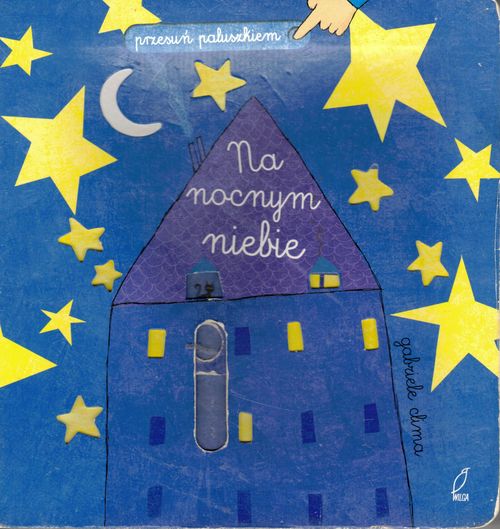 przesuń paluszkiem
Na
nocnym
niebie
gabriele clima
WILGA